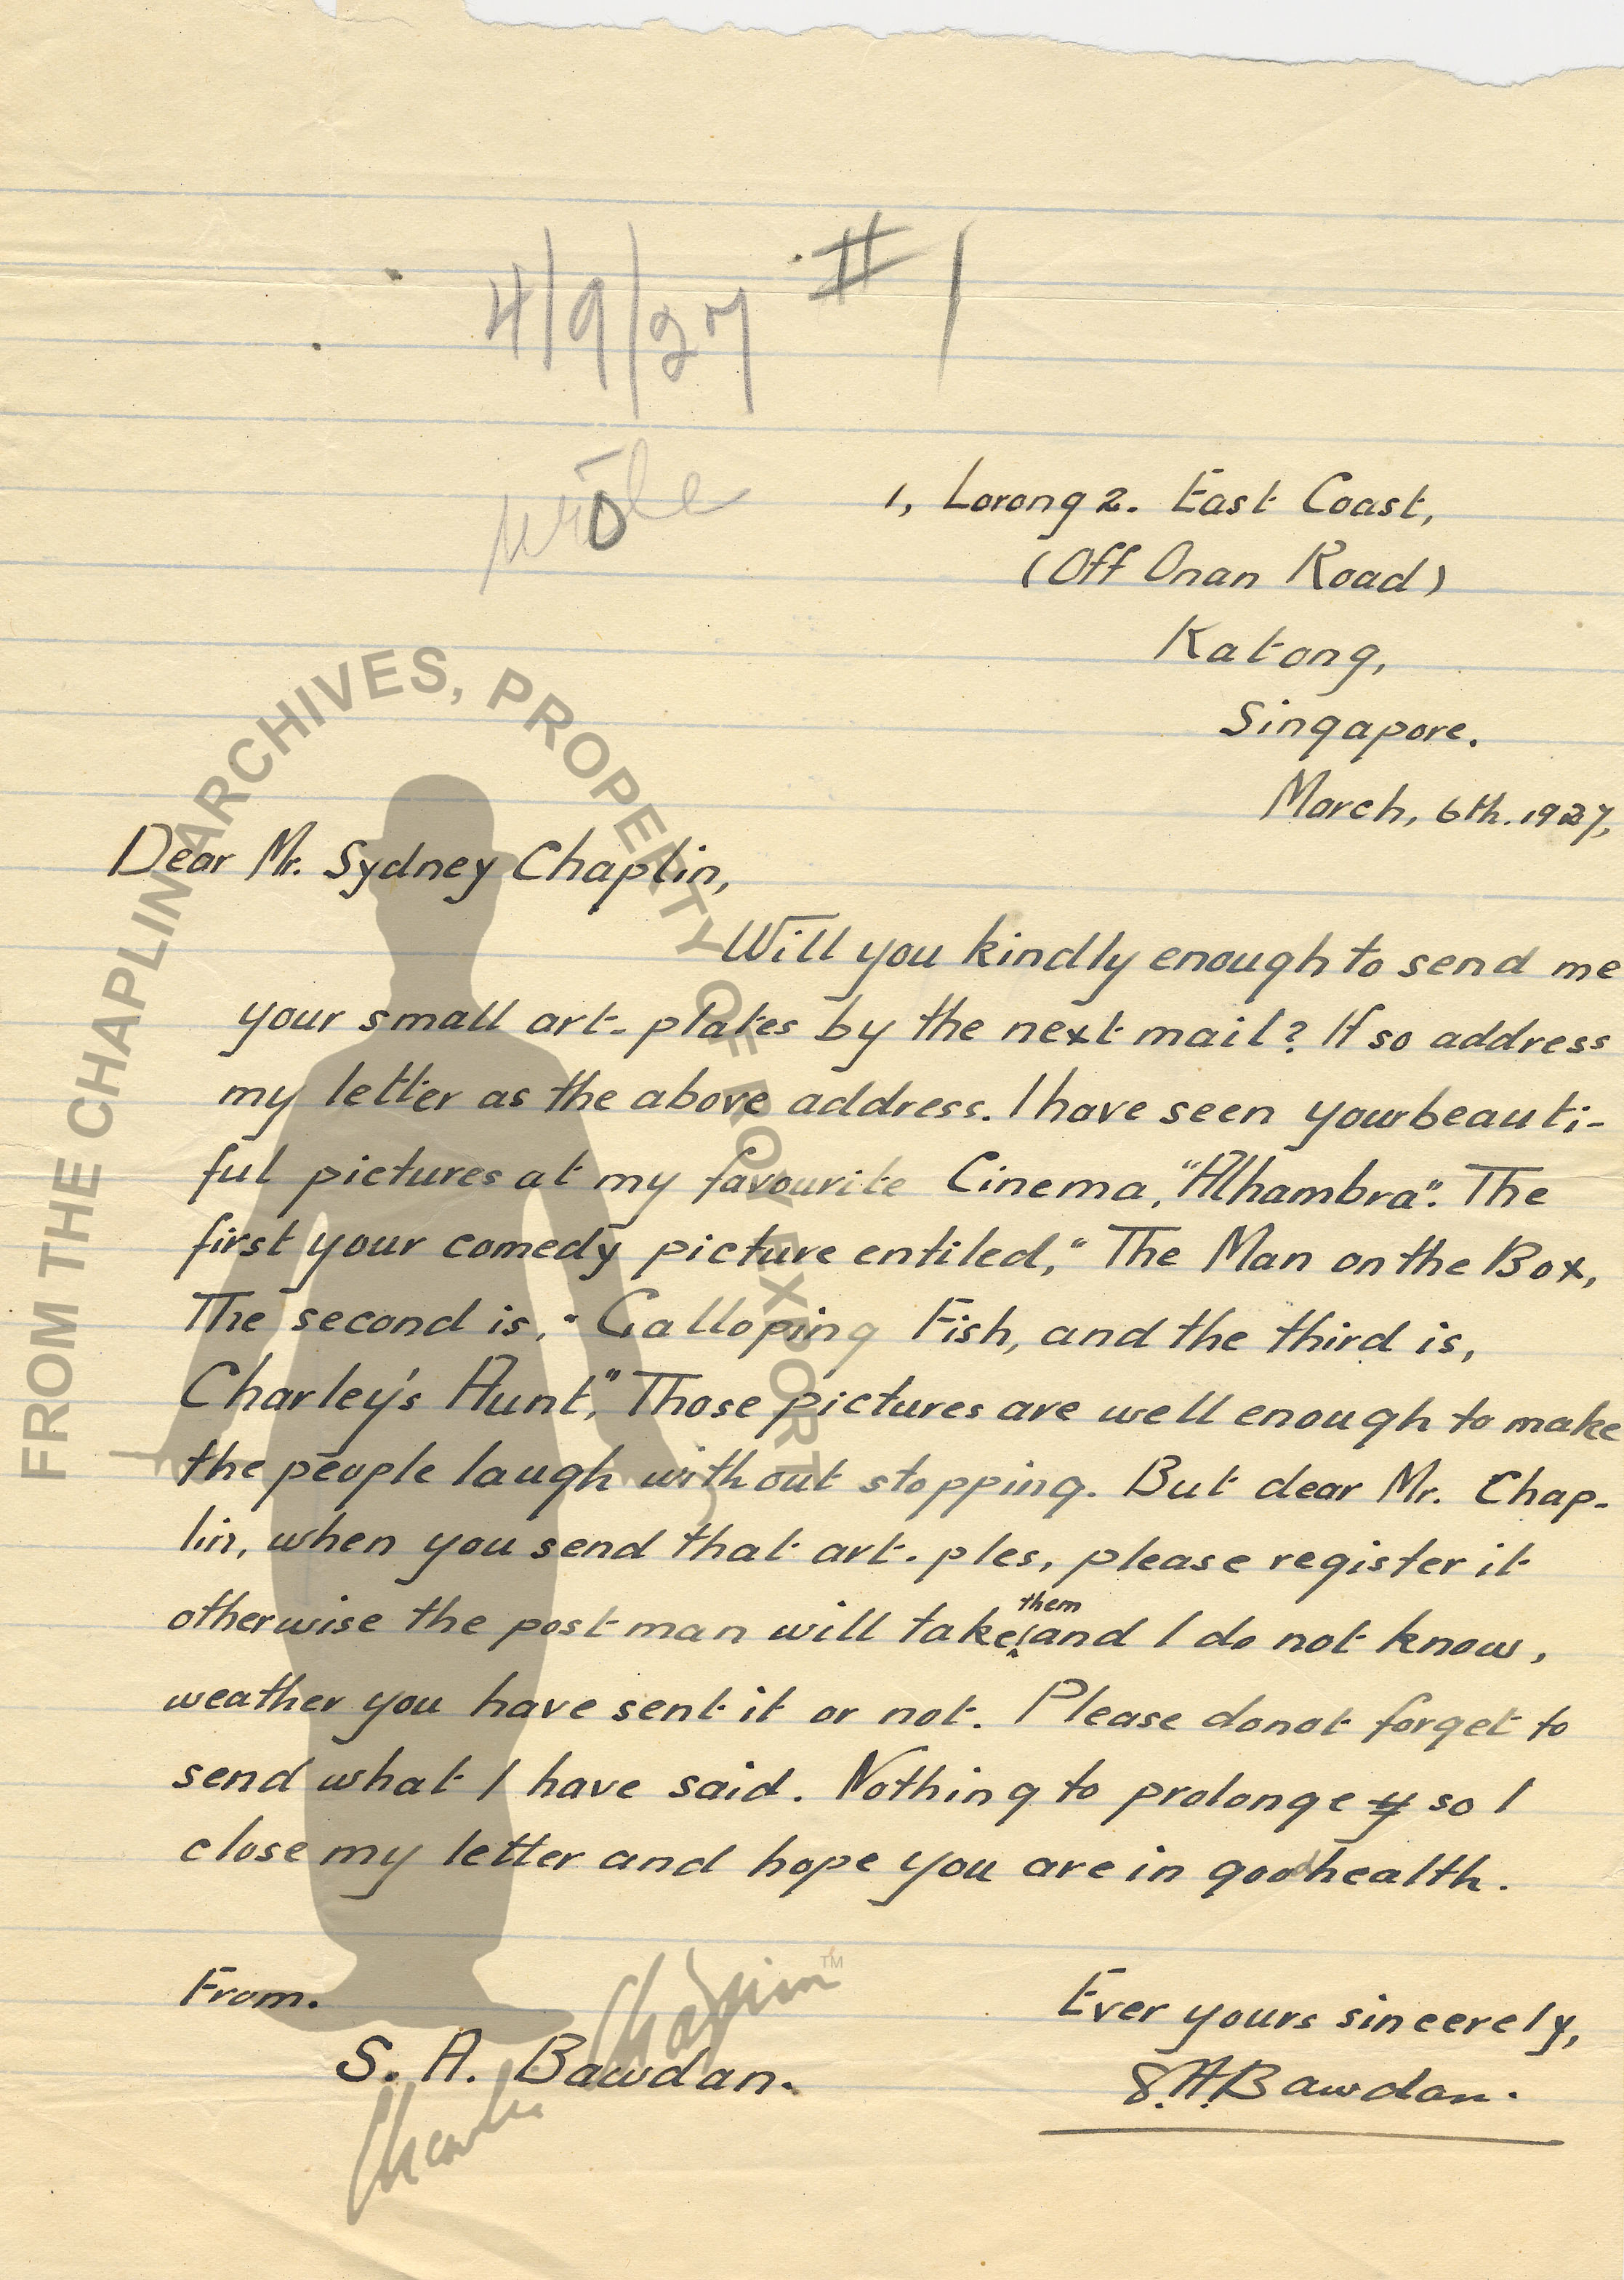 4/9/27 #1
wrote
1, Lorong 2. East Coast,
(Off Onan Road)
Katong,
Singapore.
March, 6th. 1927,
Dear Mr. Sydney Chaplin,
Will you kindly enough to send me
your small art-plates by the next mail? If so address
my letter as the above address. I have seen your beauti-
ful pictures at my favourite Cinema, "Alhambra". The
first your comedy picture entiled, "The Man on the Box,
The second is, "Galloping Fish, and the third is,
Charley's Aunt," Those pictures are well enough to make
the people laugh without stopping. But dear Mr. Chap-
lin, when you send that art. ples, please register it
otherwise the postman will take them and I do not know,
weather you have sent it or not. Please donot forget to
send what I have said. Nothing to prolonge y so I
close my letter and hope you are in good health.
From.
S. A. Bawdan.
Ever yours sincerely,
S.A. Bawdan.
FROM THE CHAPLIN ARCHIVES, PROPERTY OF ROY EXPORT
Charlie Chaplin TM